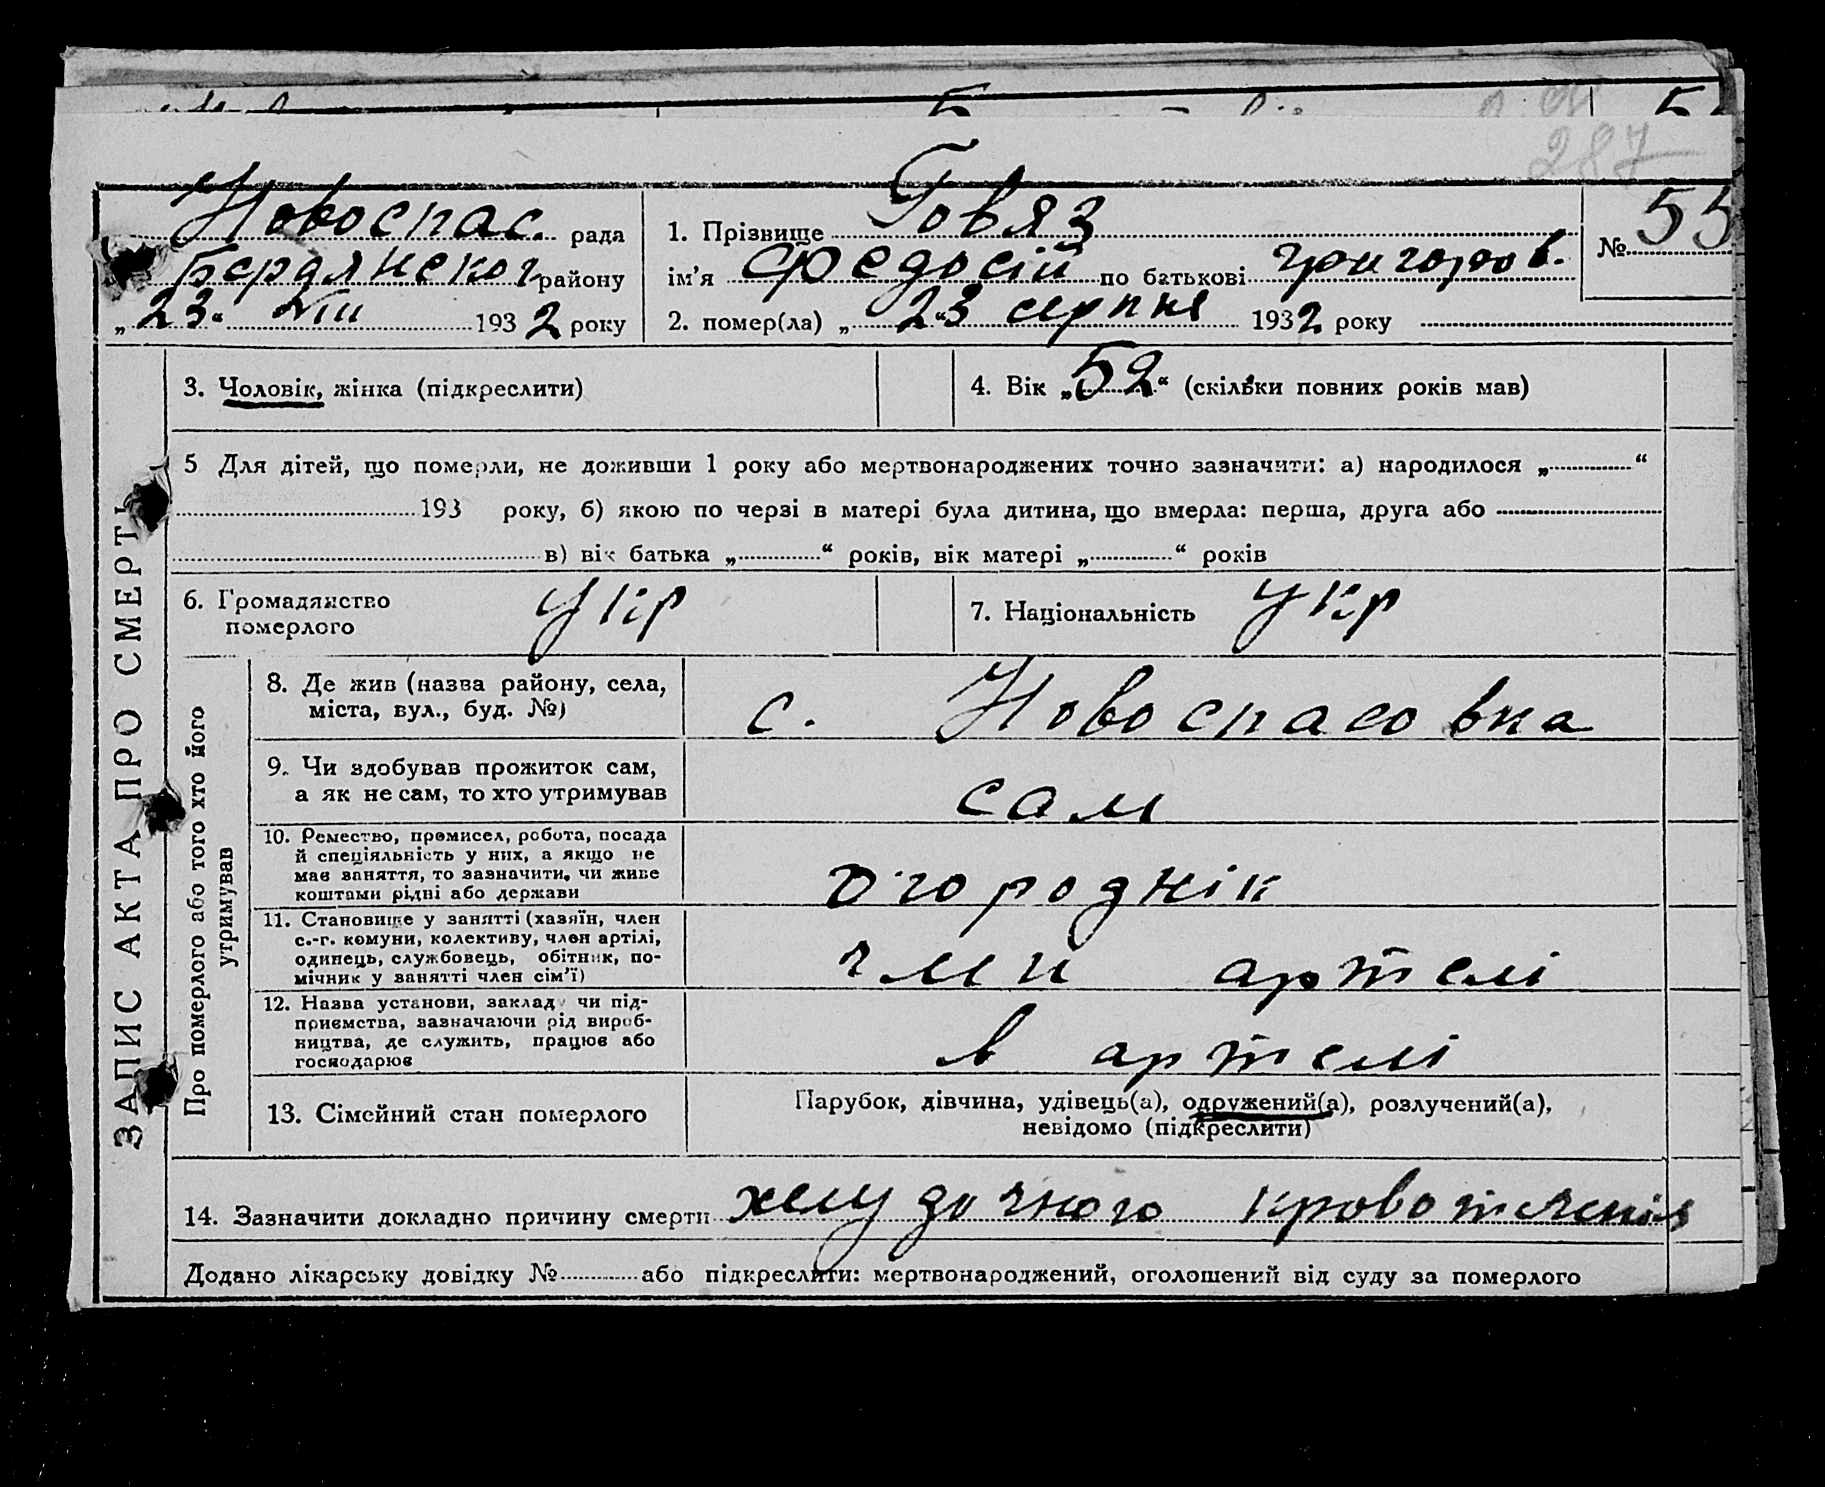 287
Новоспас. рада
Бердянског району
„23“ VIII 1932 року
1. Прізвище Говяз
ім’я Федосій по батькові Григоров.
2. помер(ла) „23“ серпня 1932 року
№ 55
ЗАПИС АКТА ПРО СМЕРТЬ
3. Чоловік, жінка (підкреслити)
4. Вік „52“ (скільки повних років мав)
5 Для дітей, що померли, не доживши 1 року або мертвонароджених точно зазначити: а) народилося „ “
193 року, б) якою по черзі в матері була дитина, що вмерла: перша, друга або
в) вік батька „ “ років, вік матері „ “ років
6. Громадянство
померлого
укр
7. Національність укр
Про померлого або того хто його
утримував
8. Де жив (назва району, села,
міста, вул., буд. №)
с. Новоспасовка
9. Чи здобував прожиток сам,
а як не сам, то хто утримував
сам
10. Ремество, промисел, робота, посада
й спеціяльність у них, а якщо не
мав заняття, то зазначити, чи живе
коштами рідні або держави
огороднік
11. Становище у занятті (хазяїн, член
с.-г. комуни, колективу, член артілі,
одинець, службовець, обітник, по-
мічник у занятті член сім’ї)
члн артелі
12. Назва установи, закладу чи під-
приємства, зазначаючи рід вироб-
ництва, де служить, працює або
господарює
в артелі
13. Сімейний стан померлого
Парубок, дівчина, удівець(а), одружений(а), розлучений(а),
невідомо (підкреслити)
14. Зазначити докладно причину смерти желудочного кровотеченія
Додано лікарську довідку № або підкреслити: мертвонароджений, оголошений від суду за померлого